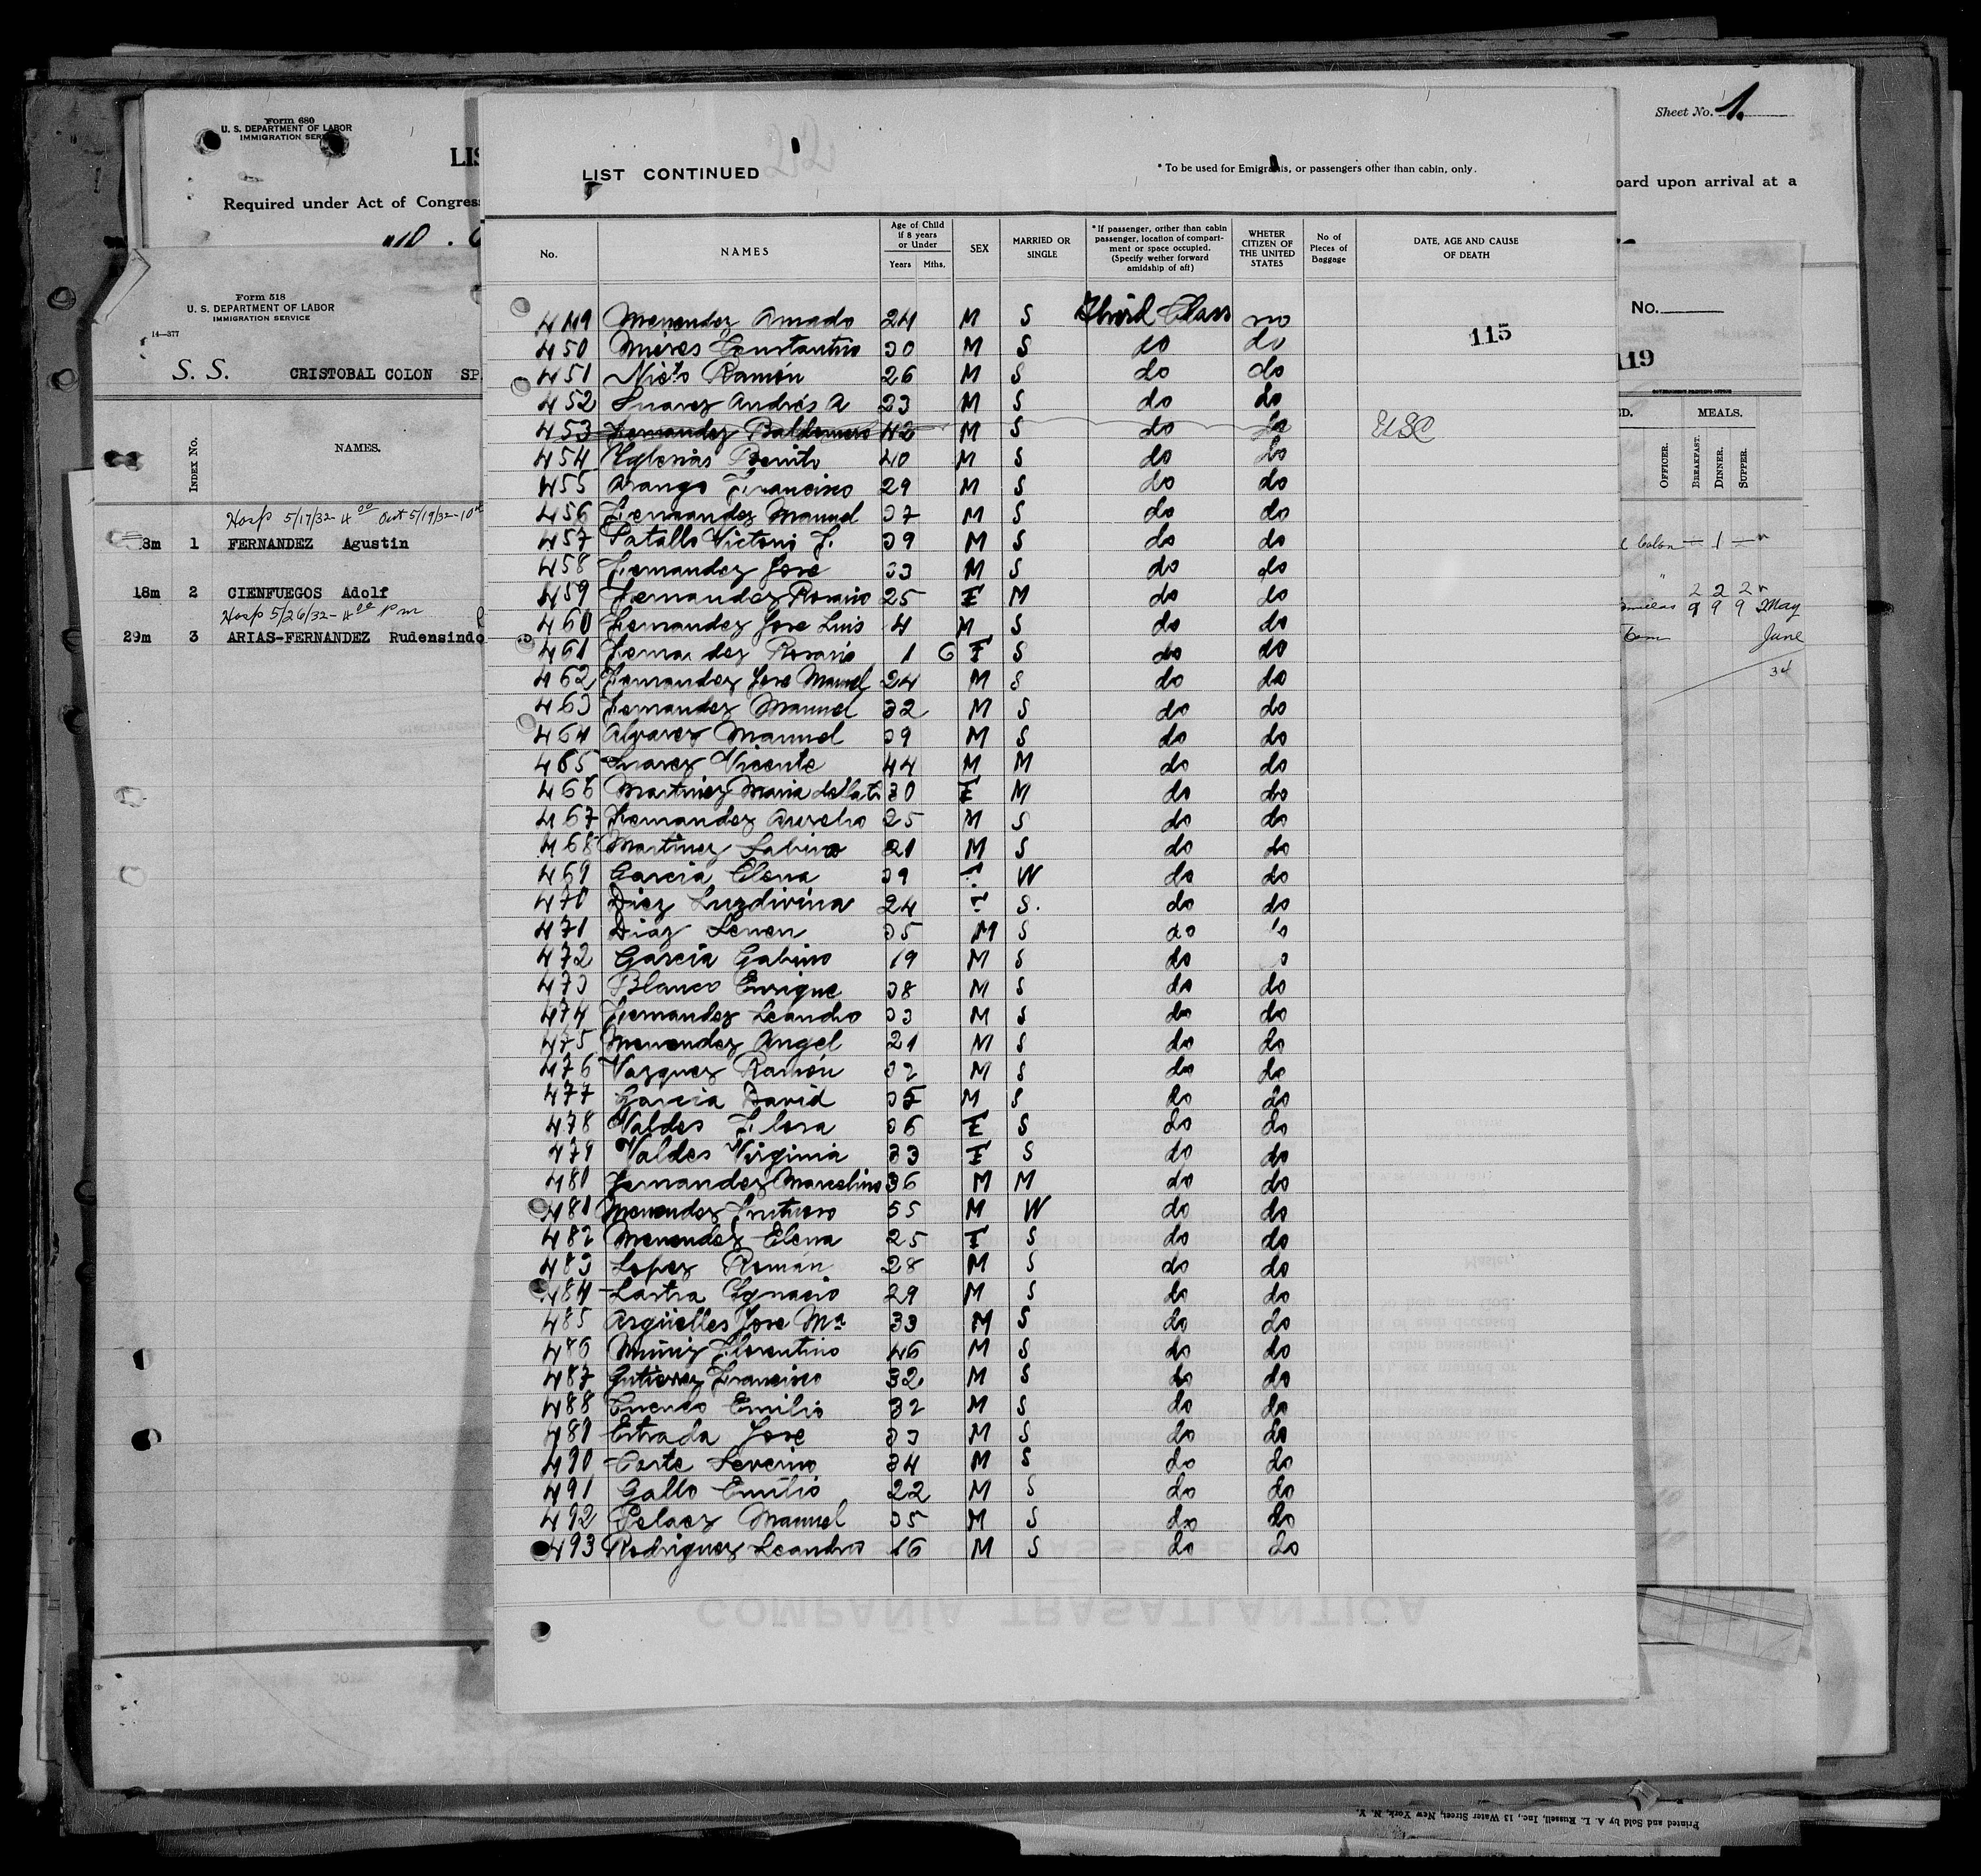 Form 680
U. S. DEPARTMENT OF LABOR
IMMIGRATION
LIS
Required under Act of Congress
Sheet No. 1.
oard upon arrival at a
Form 518
U. S. DEPARTMENT OF LABOR
IMMIGRATION SERVICE
14—377
S. S. CRISTOBAL COLON SP.
No.
119
GOVERNMENT PRINTING OFFICE
INDEX No. NAMES.
D. MEALS.
OFFICER. BREAKFAST. DINNER. SUPPER.
Hosp 5/17/32 4 00 Out 5/19/32
8m 1 FERNANDEZ Agustin
Colon — 1 —
18m 2 CIENFUEGOS Adolf
2 2 2
Hosp 5/26/32 - 4 00 Pm
9 9 9 May
29m 3 ARIAS-FERNANDEZ Rudensindo
June
34
LIST CONTINUED
* To be used for Emigrants, or passengers other than cabin, only.
No.
NAMES
Age of Child
if 8 years
or Under
Years Mths.
SEX
MARRIED OR
SINGLE
* If passenger, orther than cabin
passenger, location of compart-
ment or space occupied.
(Specify wether forward
amidship of aft)
WHETER
CITIZEN OF
THE UNITED
STATES
No of
Pieces of
Baggage
DATE, AGE AND CAUSE
OF DEATH
115
449 Menendez Amado 24 M S Third Class no
450 Mieres Constantino 30 M S do do
451 Nieto Ramón 26 M S do do
452 Suarez Andrés A 23 M S do do
453 Fernandez Baldomero 42 M S do do USC
454 Yglesias Benito 40 M S do do
455 Arango Francisco 29 M S do do
456 Fernandez Manuel 37 M S do do
457 Patallo Victorio F. 39 M S do do
458 Fernandez Jose 33 M S do do
459 Fernandez Rosario 25 F M do do
460 Fernandez Jose Luis 4 M S do do
461 Fernandez Rosario 1 6 F S do do
462 Fernandez Jose Manuel 24 M S do do
463 Fernandez Manuel 32 M S do do
464 Alvarez Manuel 39 M S do do
465 Suarez Vicente 44 M M do do
466 Martinez Maria 30 F M do do
467 Fernandez Aurelio 25 M S do do
468 Martinez Sabino 21 M S do do
469 Garcia Elena 39 F W do do
470 Diez Luzdivina 24 F S. do do
471 Diaz Senen 35 M S do do
472 Garcia Gabino 19 M S do do
473 Blanco Enrique 38 M S do do
474 Fernandez Leandro 33 M S do do
475 Menendez Angel 21 M S do do
476 Vazquez Ramón 32 M S do do
477 Garcia David 35 M S do do
478 Valdes Flora 36 F S do do
479 Valdes Virginia 33 F S do do
480 Fernandez Marcelino 36 M M do do
481 Menendez Frutuoso 55 M W do do
482 Menendez Elena 25 F S do do
483 Lopez Román 28 M S do do
484 Lastra Ygnacio 29 M S do do
485 Argüelles Jose Mª 33 M S do do
486 Muñiz Florentino 46 M S do do
487 Gutierrez Francisco 32 M S do do
488 Cuervo Emilio 32 M S do do
489 Estrada Jose 33 M S do do
490 Corte Severino 34 M S do do
491 Gallo Emilio 22 M S do do
492 Pelaez Manuel 35 M S do do
493 Rodriguez Leandro 16 M S do do
COMPAÑÍA TRASATLÁNTICA
Printed and Sold by A. L. Russell, Inc., 13 Water Street, New York, N. Y.